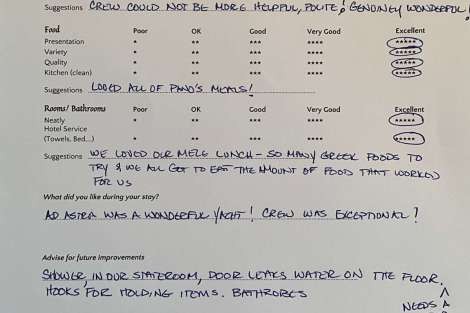 Suggestions CREW COULD NOT BE MORE HELPFUL, POLITE! GENUINELY WONDERFUL!
Food Poor OK Good Very Good Excellent
Presentation * ** *** **** *****
Variety * ** *** **** *****
Quality * ** *** **** *****
Kitchen (clean) * ** *** **** *****
Suggestions LOVED ALL OF PANO'S MEALS!
Rooms/ Bathrooms Poor OK Good Very Good Excellent
Neatly * ** *** **** *****
Hotel Service
(Towels, Bed....) * ** *** **** *****
Suggestions WE LOVED OUR MEZE LUNCH - SO MANY GREEK FOODS TO
TRY & WE ALL GOT TO EAT THE AMOUNT OF FOOD THAT WORKED
FOR US
What did you like during your stay?
AD ASTRA WAS A WONDERFUL YACHT! CREW WAS EXCEPTIONAL!
Advise for future improvements
SHOWER, IN OUR STATEROOM, DOOR LEAKS WATER ON THE FLOOR.
HOOKS FOR HOLDING ITEMS. BATHROBES
NEEDS A